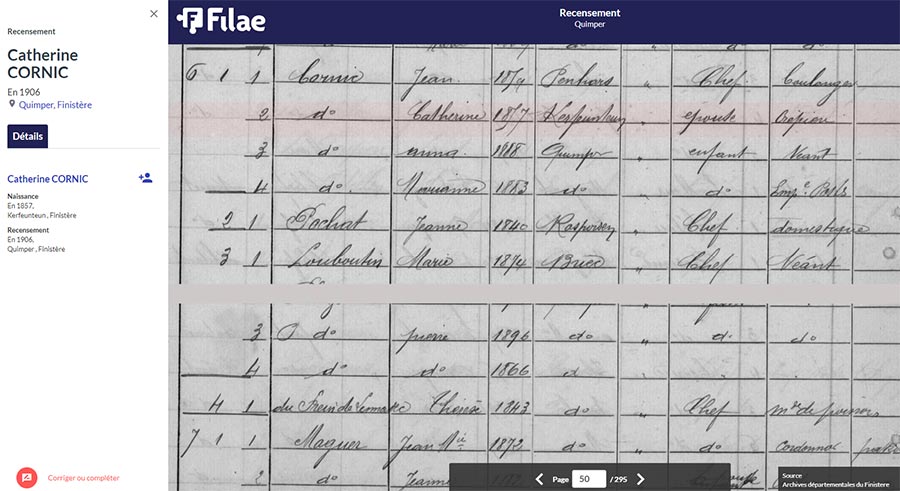 Recensement
Catherine
CORNIC
En 1906
Quimper, Finistère
Détails
Catherine CORNIC
Naissance
En 1857,
Kerfeunteun , Finistère
Recensement
En 1906,
Quimper , Finistère
Corriger ou compléter
Filae
Recensement
Quimper
6 1 1 Cornic Jean 1854 Penhars " Chef
2 do Catherine 1857 Kerfunteun " épouse
3 do anna 1888 Quimper " enfant Néant
4 do Marianne 1883 do " do
2 1 Pochat Jeanne 1840 Rosporden " Chef domestique
3 1 Louboutin Marie 1874 Briec " Chef Néant
3 do pierre 1896 do " d. do
4 do do 1866 d
4 1 Thérèse 1843 do " Chef
7 1 1 Maguer Jean Mie 1872 do " do Cordonnier
2 do Jeanne
Page 50 / 295
Source
Archives départementales du Finistere